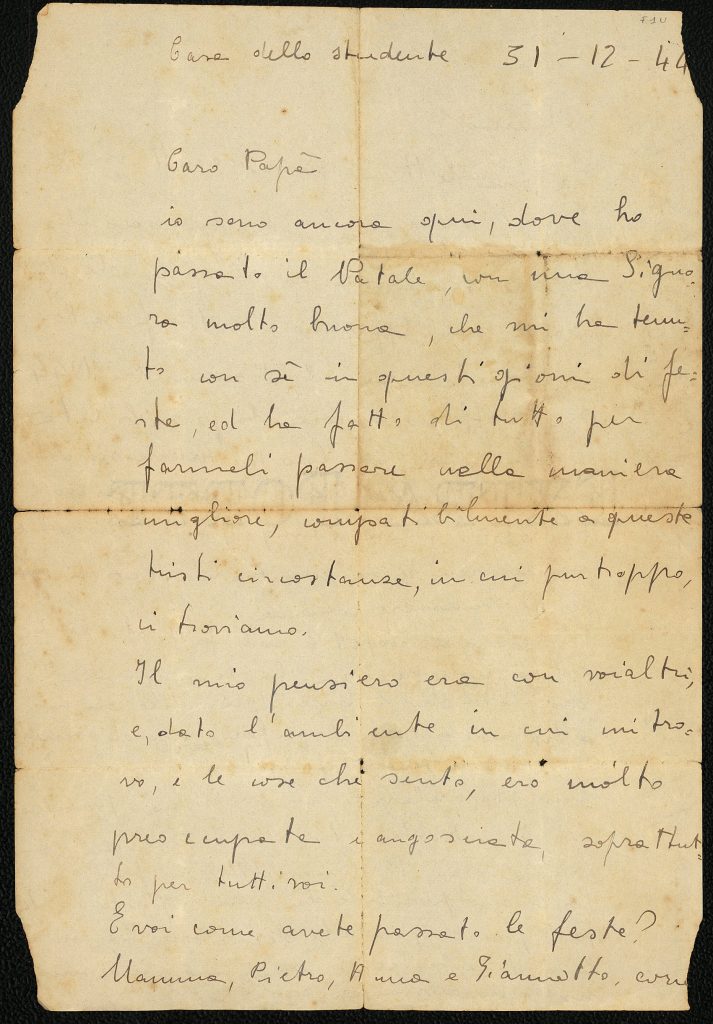 Casa dello studente 31-12-44
Caro Papà
io sono ancora qui, dove ho
passato il Natale, con una Signo-
ra molto buona, che mi ha tenu=
to con sè in questi giorni di fe=
ste, ed ha fatto di tutto per
farmeli passare nella maniera
migliore, compatibilmente a queste
tristi circostanze, in cui purtroppo,
ci troviamo.
Il mio pensiero era con voialtri,
e, dato l'ambiente in cui mi tro=
vo, e le cose che sento, ero molto
preoccupata e angosciata, soprattut=
to per tutti voi.
E voi come avete passato le feste?
Mamma, Pietro, Anna e Giannotto, come